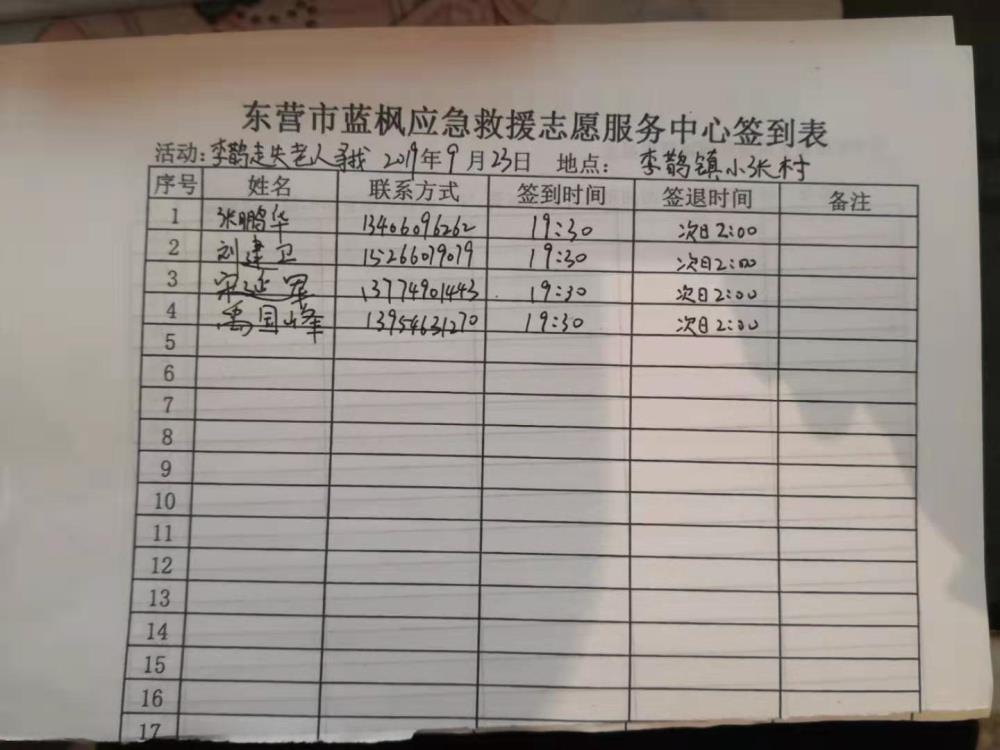 东营市蓝枫应急救援志愿服务中心签到表
活动:李鹊走失老人寻找 2019年9月23日 地点: 李鹊镇小张村
序号 姓名 联系方式 签到时间 签退时间 备注
1 张鹏华 13406096262 19:30 次日2:00
2 刘建卫 15266079079 19:30 次日2:00
3 宋延军 13774901443 19:30 次日2:00
4 禹国峰 13954631270 19:30 次日2:00
5
6
7
8
9
10
11
12
13
14
15
16
17